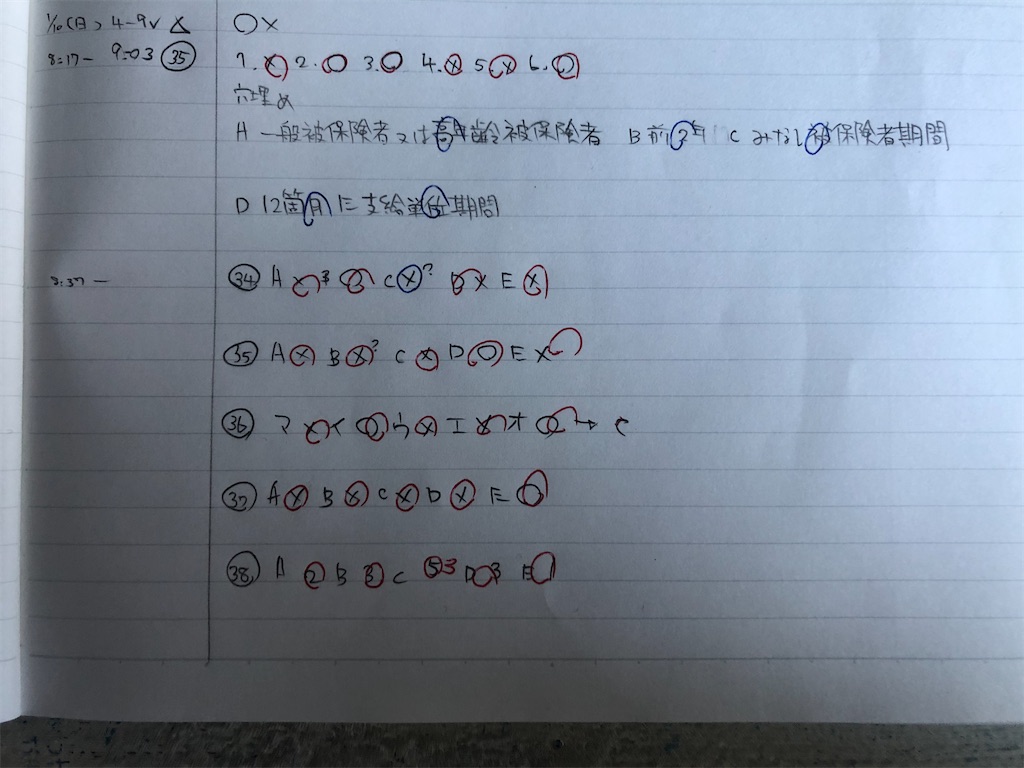 1/10(日) 4-9v △ ○×
8:17- 9:03 ㉟ 1.× 2.○ 3.○ 4.× 5× 6.○
穴埋め
A 一般被保険者又は高年齢被保険者 B 前2年 C みなし被保険者期間
D 12箇月 E 支給単位期間
8:37- ㉞ A × B ○ C ×? D × E ×
㉟ A × B ×? C × D ○ E ×
㊱ ア × イ ○ ウ × エ × オ ○ → C
㊲ A × B × C × D × E ○
㊳ A 2 B 3 C ⑤3 D 3 E